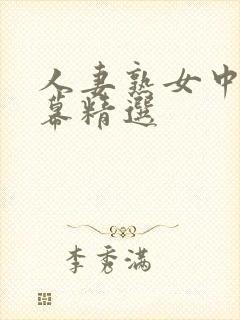 人妻熟女中
幕精選
李秀满